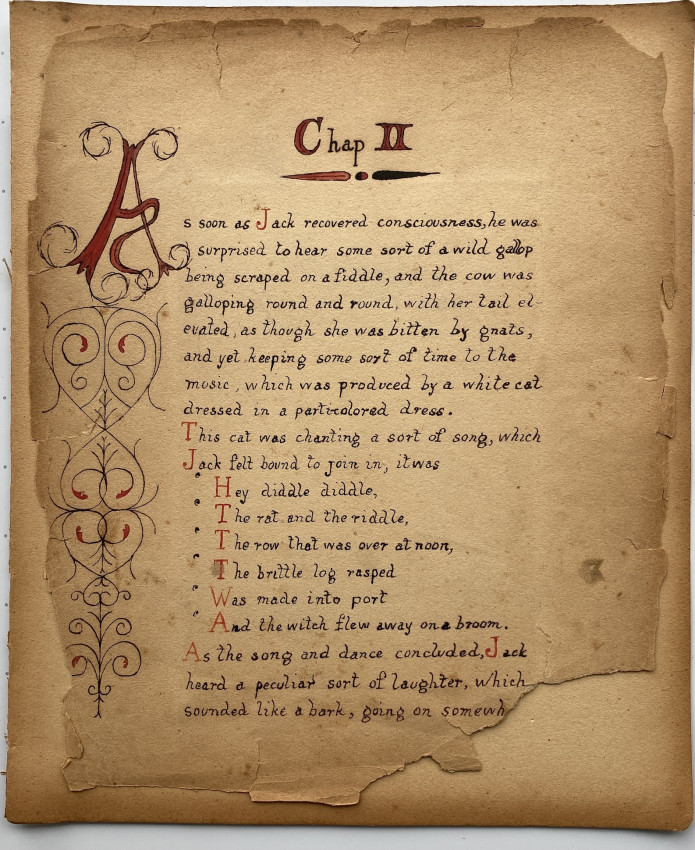 Chap II
As soon as Jack recovered consciousness, he was
surprised to hear some sort of a wild gallop
being scraped on a fiddle, and the cow was
galloping round and round, with her tail el-
evated, as though she was bitten by gnats,
and yet keeping some sort of time to the
music, which was produced by a white cat
dressed in a parti-colored dress.
This cat was chanting a sort of song, which
Jack felt bound to join in, it was
" Hey diddle diddle,
" The rat and the riddle,
" The row that was over at noon,
" The brittle log rasped
" Was made into port
" And the witch flew away on a broom.
As the song and dance concluded, Jack
heard a peculiar sort of laughter, which
sounded like a bark, going on somewh